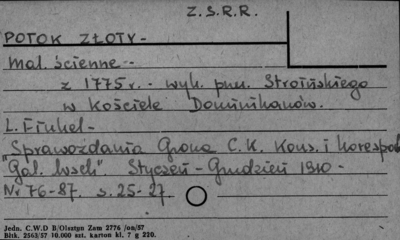 Z.S.R.R.
POTOK ZŁOTY -
Mal. ścienne --
z 1775 r. - wyk. pnn. Stroińskiego
w Kościele Dominikanów.
L. Finkel -
"Sprawozdania Grona C.K. Kons. i Korespond
Gal. wsch". Styczeń - Grudzień 1910 -
Nr 76-87. s. 25-27
Jedn. C.W.D B/Olsztyn Zam 2776 /on/57
Bltk. 2563/57 10.000 szt. karton kl. 7 g 220.